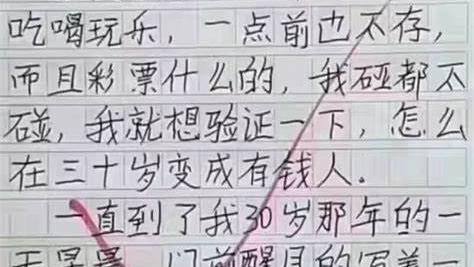 吃喝玩乐，一点前也不存，
而且彩票什么的，我碰都不
碰，我就想验证一下，怎么
在三十岁变成有钱人。
一直到了我30岁那年的一